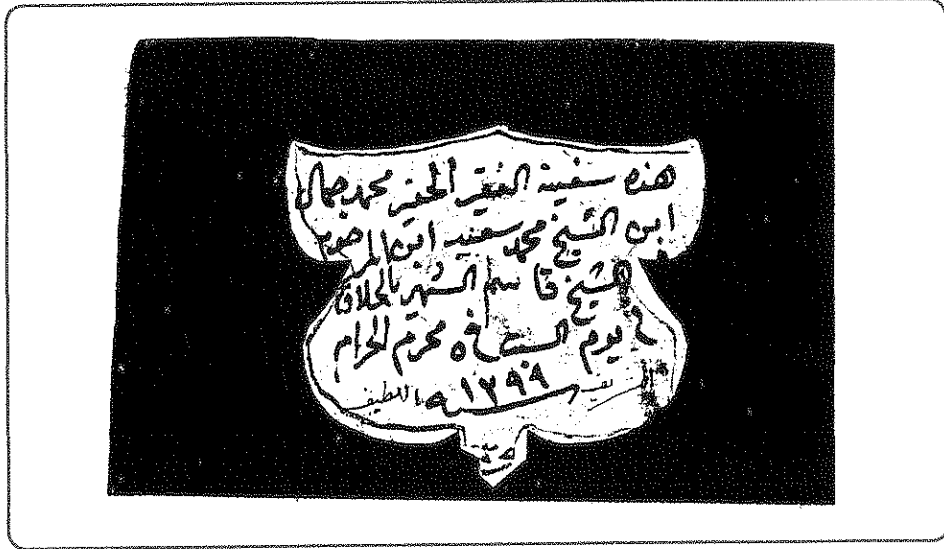 هذه سفينة الفقير الحقير محمد جمال
ابن الشيخ محمد سعيد ابن المرحوم
الشيخ قاسم الشهير بالحلاق
في يوم السبت في ٥ محرم الحرام
سنة ١٢٩٩